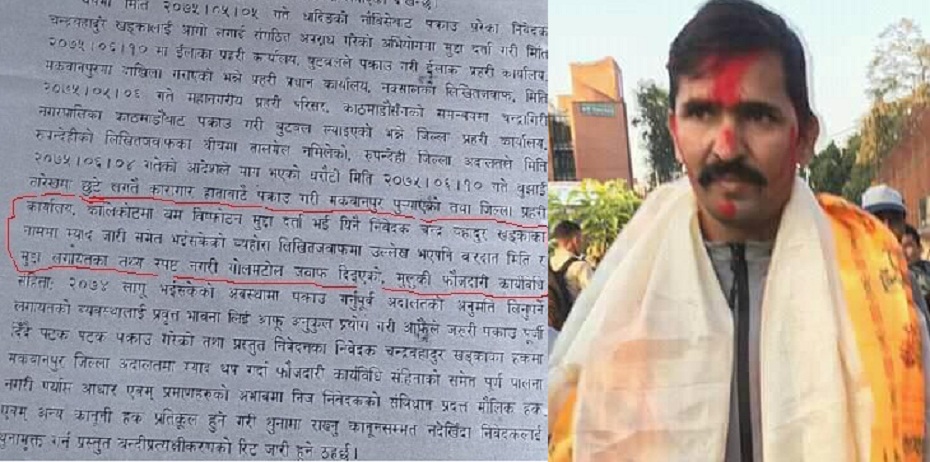 मिति २०७५।०५।०५ गते धादिङको नौबिसेबाट पक्राउ परेका निवेदक
चन्द्रबहादुर खड्कालाई आगो लगाई संगठित अपराध गरेको अभियोगमा मुद्दा दर्ता गरी मिति
२०७५।०६।१० मा ईलाका प्रहरी कार्यालय, बुटवलले पक्राउ गरी ईलाका प्रहरी कार्यालय,
मकवानपुरमा दाखिला गराएको भन्ने प्रहरी प्रधान कार्यालय, नक्सालको लिखितजवाफ, मिति
२०७५।०५।०६ गते महानगरीय प्रहरी परिसर, काठमाडौंसँगको समन्वयमा चन्द्रागिरी
नगरपालिका काठमाडौंबाट पक्राउ गरी बुटवल ल्याइएको भन्ने जिल्ला प्रहरी कार्यालय,
रुपन्देहीको लिखितजवाफका बीचमा तालमेल नमिलेको, रुपन्देही जिल्ला अदालतले मिति
२०७५।०६।०४ गतेको आदेशले माग भएको धरौटी मिति २०७५।०६।१० गते बुझाई
तारेखमा छुटे लगत्तै कारागार हाताबाटै पक्राउ गरी मकवानपुर पुर्‍याएको तथा जिल्ला प्रहरी
कार्यालय, कालिकोटमा बम विष्फोटन मुद्दा दर्ता भई यिनै निवेदक चन्द्र बहादुर खड्काका
नाममा म्याद जारी समेत भईसकेको व्यहोरा लिखितजवाफमा उल्लेख भएपनि वारदात मिति र
मुद्दा लगायतका तथ्य स्पष्ट नगरी गोलमटोल जवाफ दिइएको, मुलुकी फौजदारी कार्यविधि
संहिता, २०७४ लागू भईसकेको अवस्थामा पक्राउ गर्नुपूर्व अदालतको अनुमति लिनुपर्ने
लगायतको व्यवस्थालाई प्रवृत्त भावना लिई आफू अनुकूल प्रयोग गरी आफैंले जरुरी पक्राउ पूर्जी
दिँदै पटक पटक पक्राउ गरेको तथा प्रस्तुत निवेदनका निवेदक चन्द्रबहादुर खड्काका हकमा
मकवानपुर जिल्ला अदालतमा म्याद थप गर्दा फौजदारी कार्यविधि संहिताको समेत पूर्ण पालना
नगरी पर्याप्त आधार एवम् प्रमाणहरुको अभावमा निज निवेदकको संविधान प्रदत्त मौलिक हक
एवम् अन्य कानूनी हक प्रतिकूल हुने गरी थुनामा राख्नु कानूनसम्मत नदेखिँदा निवेदकलाई
थुनामुक्त गर्न प्रस्तुत बन्दीप्रत्यक्षीकरणको रिट जारी हुने ठहर्छ।